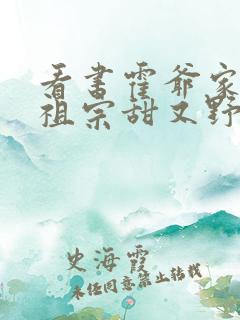 看书霍爷家
祖宗甜又野
史海霞
未经同意禁止转载